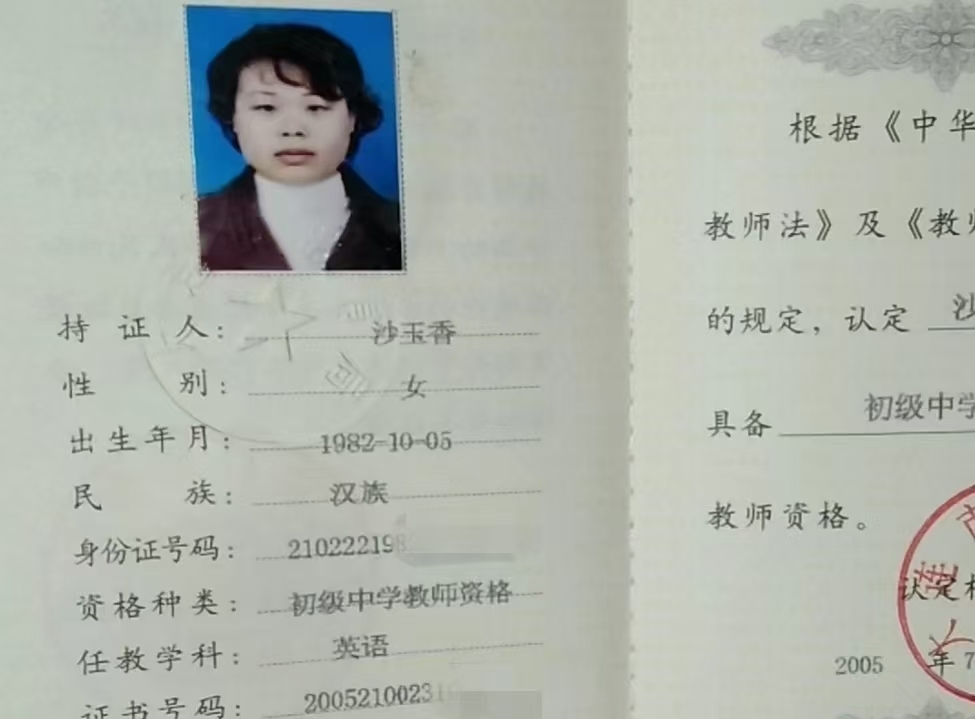 持证人：沙玉香
性别：女
出生年月：1982-10-05
民族：汉族
身份证号码：210222198
资格种类：初级中学教师资格
任教学科：英语
证书号码：2005210023
根据《中华
教师法》及《教师
的规定，认定 沙
具备 初级中学
教师资格。
认定机
2005 年 7